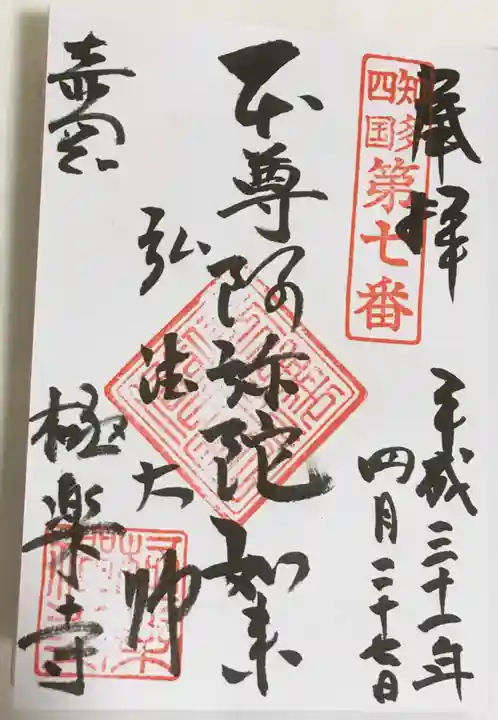 奉拝
知多
四国
第七番
平成三十一年
四月二十七日
本尊阿弥陀如来
弘法大師
極楽寺